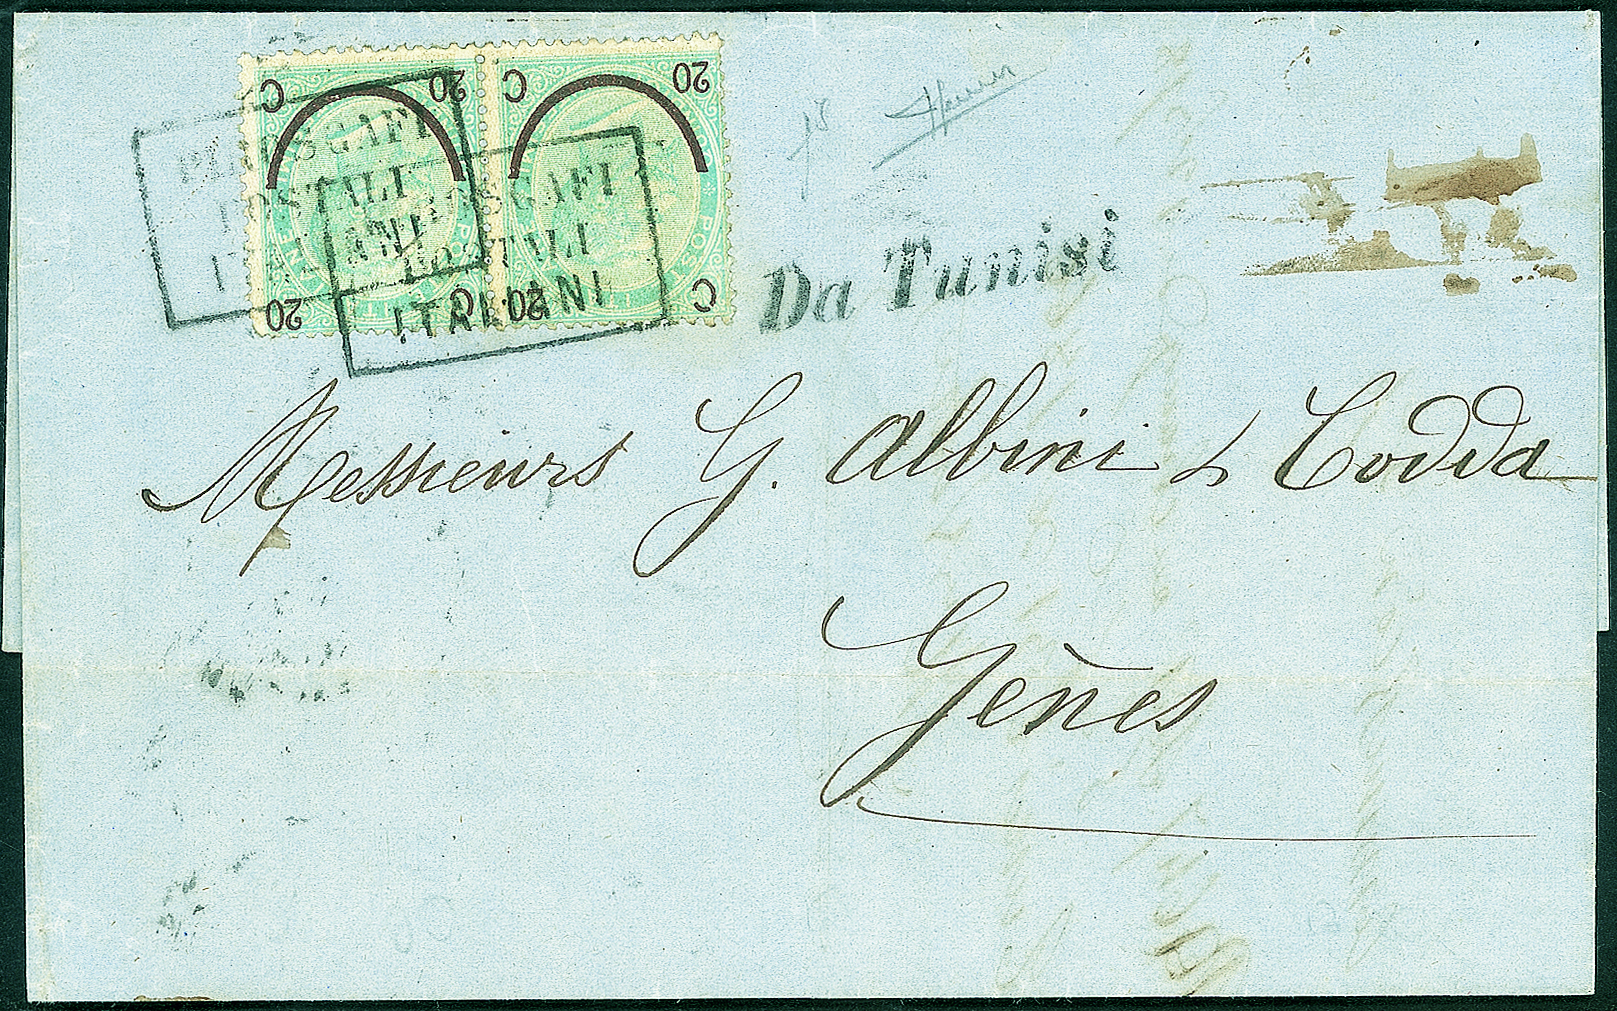 C 20 C 20
20 C 20 C
PIROSCAFI
POSTALI
ITALIANI
PIROSCAFI
POSTALI
ITALIANI
Da Tunisi
Messieurs G. Albini & Codda
Gênes